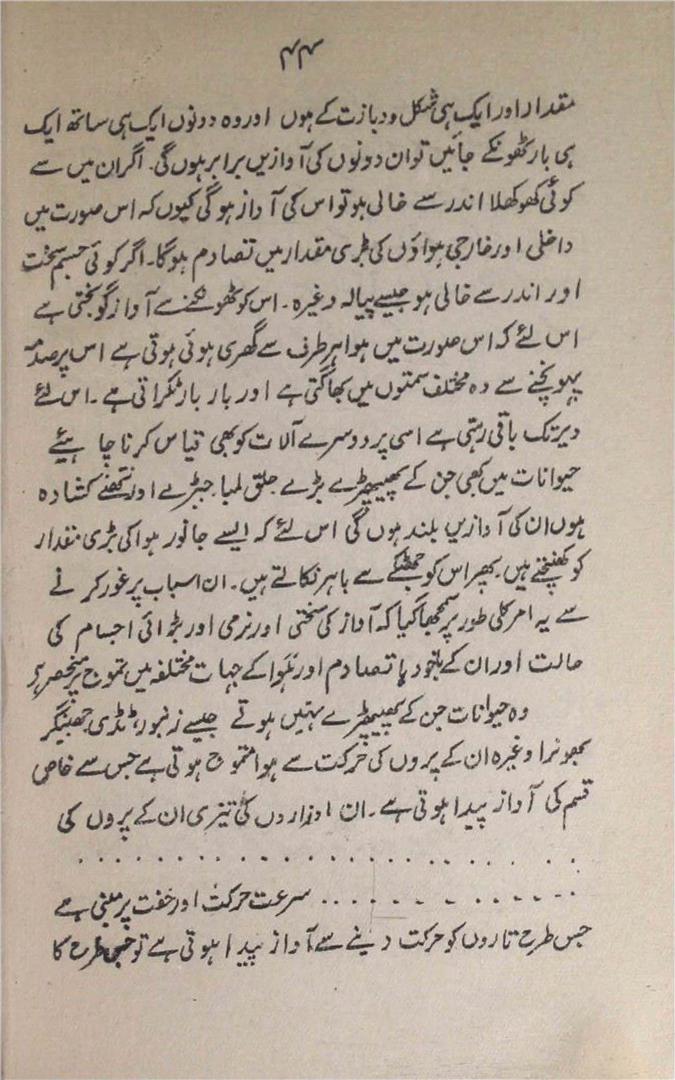 ۴۴
مقدار اور ایک ہی شکل و دبازت کے ہوں اور وہ دونوں ایک ہی ساتھ ایک
ہی بار ٹھونکے جائیں تو ان دونوں کی آوازیں برابر ہوں گی۔ اگر ان میں سے
کوئی کھوکھلا اندر سے خالی ہو تو اس کی آواز ہو گی کیوں کہ اس صورت میں
داخلی اور خارجی ہواؤں کی بڑی مقدار میں تصادم ہوگا۔ اگر کوئی جسم سخت
اور اندر سے خالی ہو جیسے پیالہ وغیرہ۔ اس کو ٹھونکنے سے آواز گونجتی ہے
اس لئے کہ اس صورت میں ہوا ہر طرف سے گھری ہوئی ہوتی ہے اس پر صدمہ
پہونچنے سے وہ مختلف سمتوں میں بھاگتی ہے اور بار بار ٹکراتی ہے۔ اس لئے
دیر تک باقی رہتی ہے اسی پر دوسرے آلات کو بھی قیاس کرنا چاہئیے
حیوانات میں کبھی جن کے پھیپھڑے بڑے حلق لمبا جبڑے اور نتھنے کشادہ
ہوں ان کی آوازیں بلند ہوں گی اس لئے کہ ایسے جانور ہوا کی بڑی مقدار
کو کھینچتے ہیں۔ پھر اس کو جھٹکے سے باہر نکالتے ہیں۔ ان اسباب پر غور کرنے
سے یہ امر کلی طور پر سمجھا گیا کہ آواز کی سختی اور نرمی اور بڑائی اجسام کی
حالت اور ان کے تصادم اور ہوا کے جہات مختلفہ میں تموج پر منحصر ہے
وہ حیوانات جن کے پھیپھڑے نہیں ہوتے جیسے زنبور، ٹڈی جھینگر
بھونرا وغیرہ ان کے پروں کی حرکت سے ہوا متموج ہوتی ہے جس سے خاص
قسم کی آواز پیدا ہوتی ہے۔ ان اوزاروں کی تیزی ان کے پروں کی
. . . . . . . . . . . . . . . . . . . . . .
. . . . . . . . . . . سرعت حرکت اور خفت پر مبنی ہے
جس طرح تاروں کو حرکت دینے سے آواز پیدا ہوتی ہے تو جس طرح کا